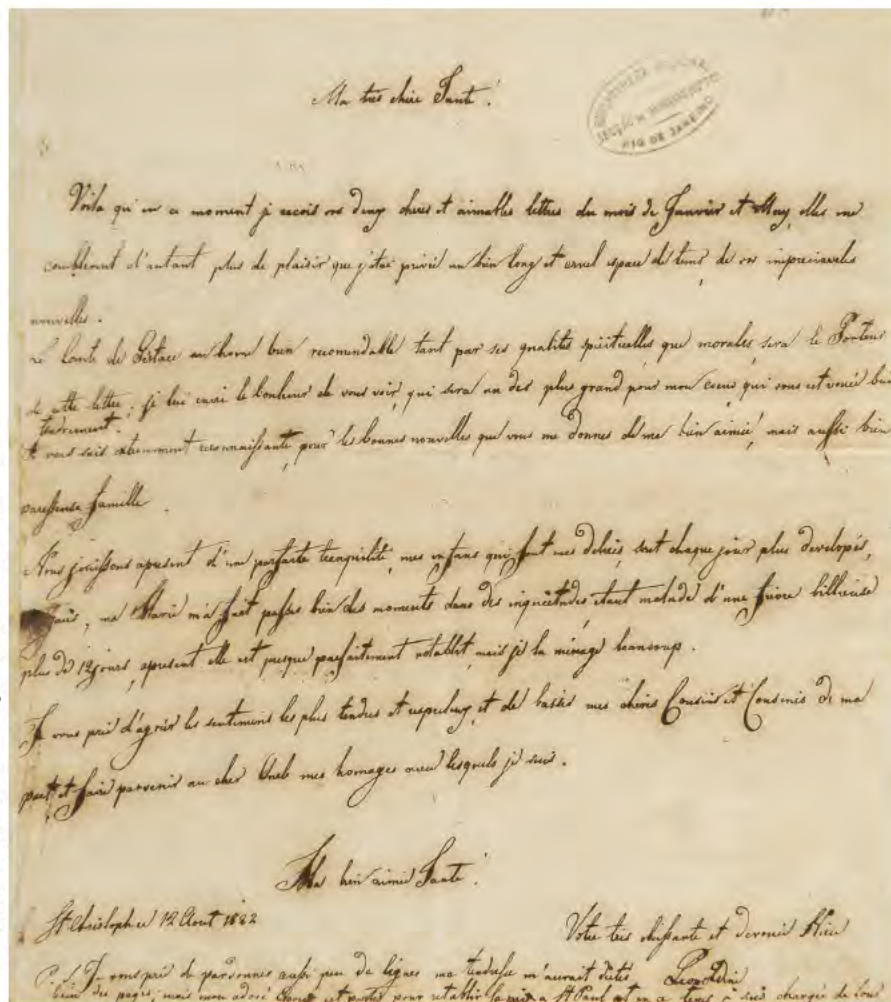 Ma très chère Tante!
BIBLIOTHECA NACIONAL
SECÇÃO DE MANUSCRIPTOS
RIO DE JANEIRO
Voila qu'en ce moment je recois vos deux cheres et aimables lettres du mois de Janvier et May, elles me
comblerent d'autant plus de plaisir que j'etai privée un bien long et cruel espace de tems, de vos impreciaveles
nouvelles.
Le Comte de un home bien recomendable tant par ses qualités spirituelles, que morales, sera le Porteur
de cette lettre; je lui envie le bonheur de vous voir, qui sera un des plus grand pour mon coeur qui vous est vouée bien
tendrement.
Je vous suis extremment reconnaissante, pour les bonnes nouvelles que vous me donnes de me bien aimée, mais aussi bien
paressense famille.
Nous jouissons apresent d'une parfaite tranquilité, mes enfans qui font mes delices, sont chaque jour plus developés,
mais, ma Marie m'a fait passer bien des moments dans des inquietudes, etant malade d'une fievre billieuse
plus de 12 jours, apresent elle est presque parfaitement retablit, mais je la ménage beaucoup.
Je vous prie d'agréer les sentimens les plus tendres et respectuey, et de baiser mes chéris Cousins et Cousines de ma
part, et faire parvenir au cher Oncle mes homages avec lesquels je suis.
Ma bien aimée Tante!
St Christoph ce 12 Aout 1822
Votre très obeissante et devouée Niéce
Leopoldine
P. S. Je vous prie de pardonner aussi peu de lignes ma tendresse m'aurait dictés
bien des pages; mais mon adoré Epoux est partis pour retablir la paix a St Paul et je suis chargée de tous